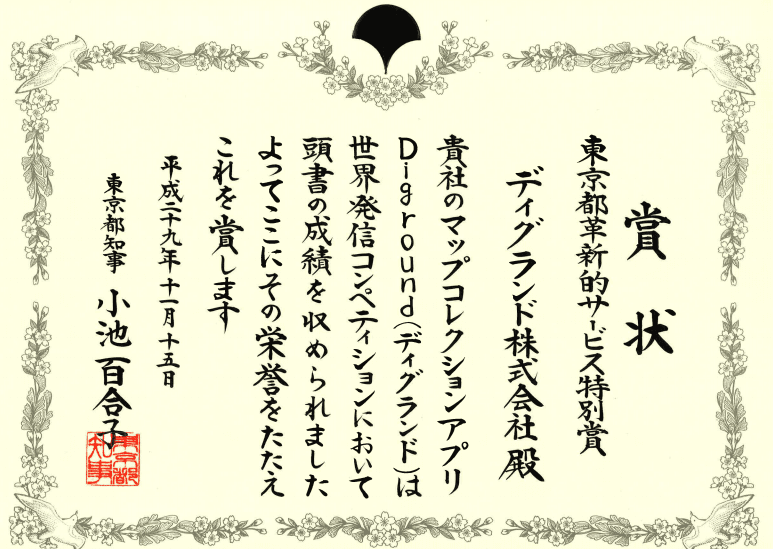 賞状
東京都革新的サービス特別賞
ディグランド株式会社殿
貴社のマップコレクションアプリ
Diground(ディグランド)は
世界発信コンペティションにおいて
頭書の成績を収められました
よってここにその栄誉をたたえ
これを賞します
平成二十九年十一月十五日
東京都知事 小池百合子
東京都
知事